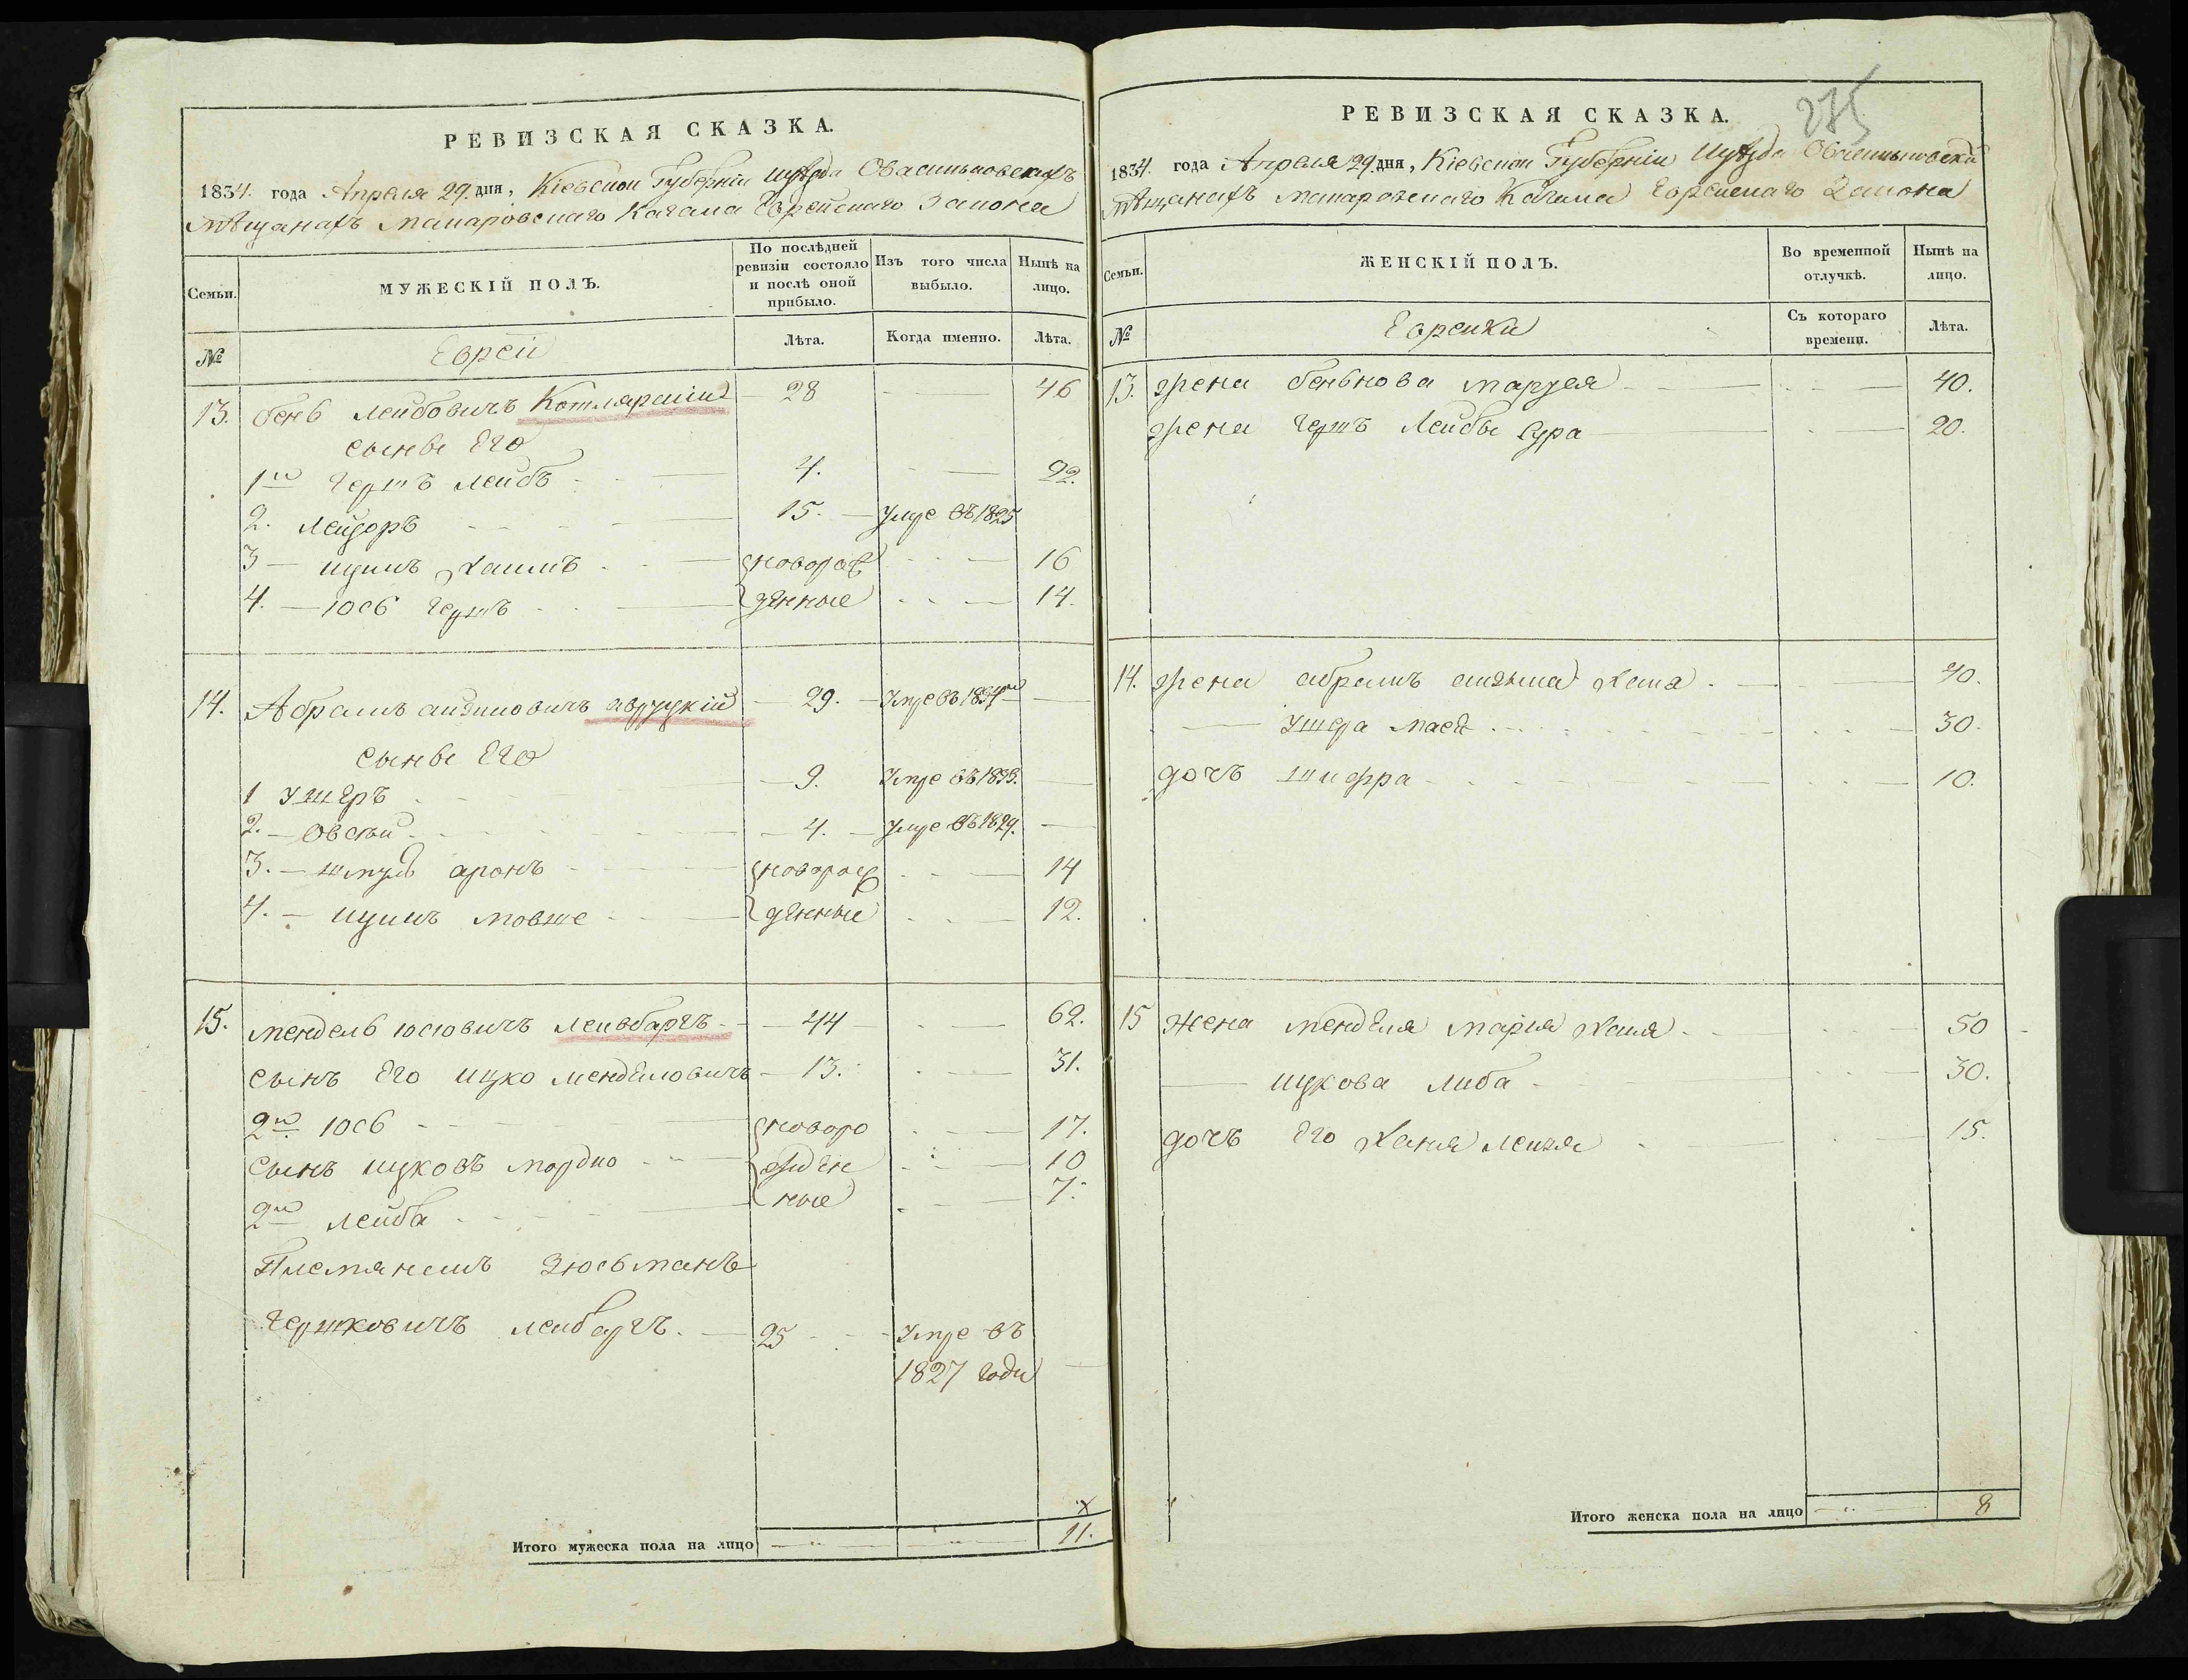 РЕВИЗСКАЯ СКАЗКА.
1834. года Апреля 29. дня, Кіевской Губерніи уѣзда О Васильковскихъ
Мѣщанахъ Макаровскаго Кагала Еврейскаго Закона
Семьи.
МУЖЕСКІЙ ПОЛЪ.
По послѣдней ревизіи состояло и послѣ оной прибыло.
Изъ того числа выбыло.
Нынѣ на лицо.
№
Еврей
Лѣта.
Когда именно.
Лѣта.
13. Бень Лейбовичъ Котлярскій 28 46
Сыновъ Его
1й Гершъ Лейбъ 4. 22.
2. Лейзоръ 15. Умре въ 1825
3 — Ицикъ Хаимъ новорож 16
4. — Юсь Гершъ денные 14.
14. Абрамъ Айзиковичъ Авруцкій 29. Умре въ 1834
Сынве Его
1 Ушеръ 9. Умре въ 1833.
2. — Овсѣй 4. Умре въ 1829.
3. — Шмуль Аронъ новорож 14
4. — Ицикъ Мовше денные 12.
15. Мендель Юсіовичъ Лейвбаргъ 44 62.
Сынъ Его Ицко Менделовичъ 13. 31.
2й Юсь новоро 17.
Сынъ Ицковъ Мордко жден 10
2й Лейба ные 7.
Племянникъ Зюсьманъ
Гершковичъ Лейбаргъ. 25 Умре въ
1827 годи
Итого мужеска пола на лицо 11.
275
РЕВИЗСКАЯ СКАЗКА.
1834. года Апреля 29. дня, Кіевской Губерніи Уѣзда О Васильковски
Мѣщанахъ Макаровскаго Кагала Еврейскаго Закона
Семьи.
ЖЕНСКІЙ ПОЛЪ.
Во временной отлучкѣ.
Нынѣ на лицо.
№
Еврейки
Съ котораго времени.
Лѣта.
13. Жена Бенькова Маруся 40.
Жена Гершъ Лейбы Сура 20.
14. Жена Абрамъ Айзика Хана 40.
Ушера Мася 30.
дочъ Шифра 10.
15 Жена Менделя Марія Хая 50
Ицкова Либа 30.
дочъ Его Ханя Лейзя 15.
Итого женска пола на лицо 8